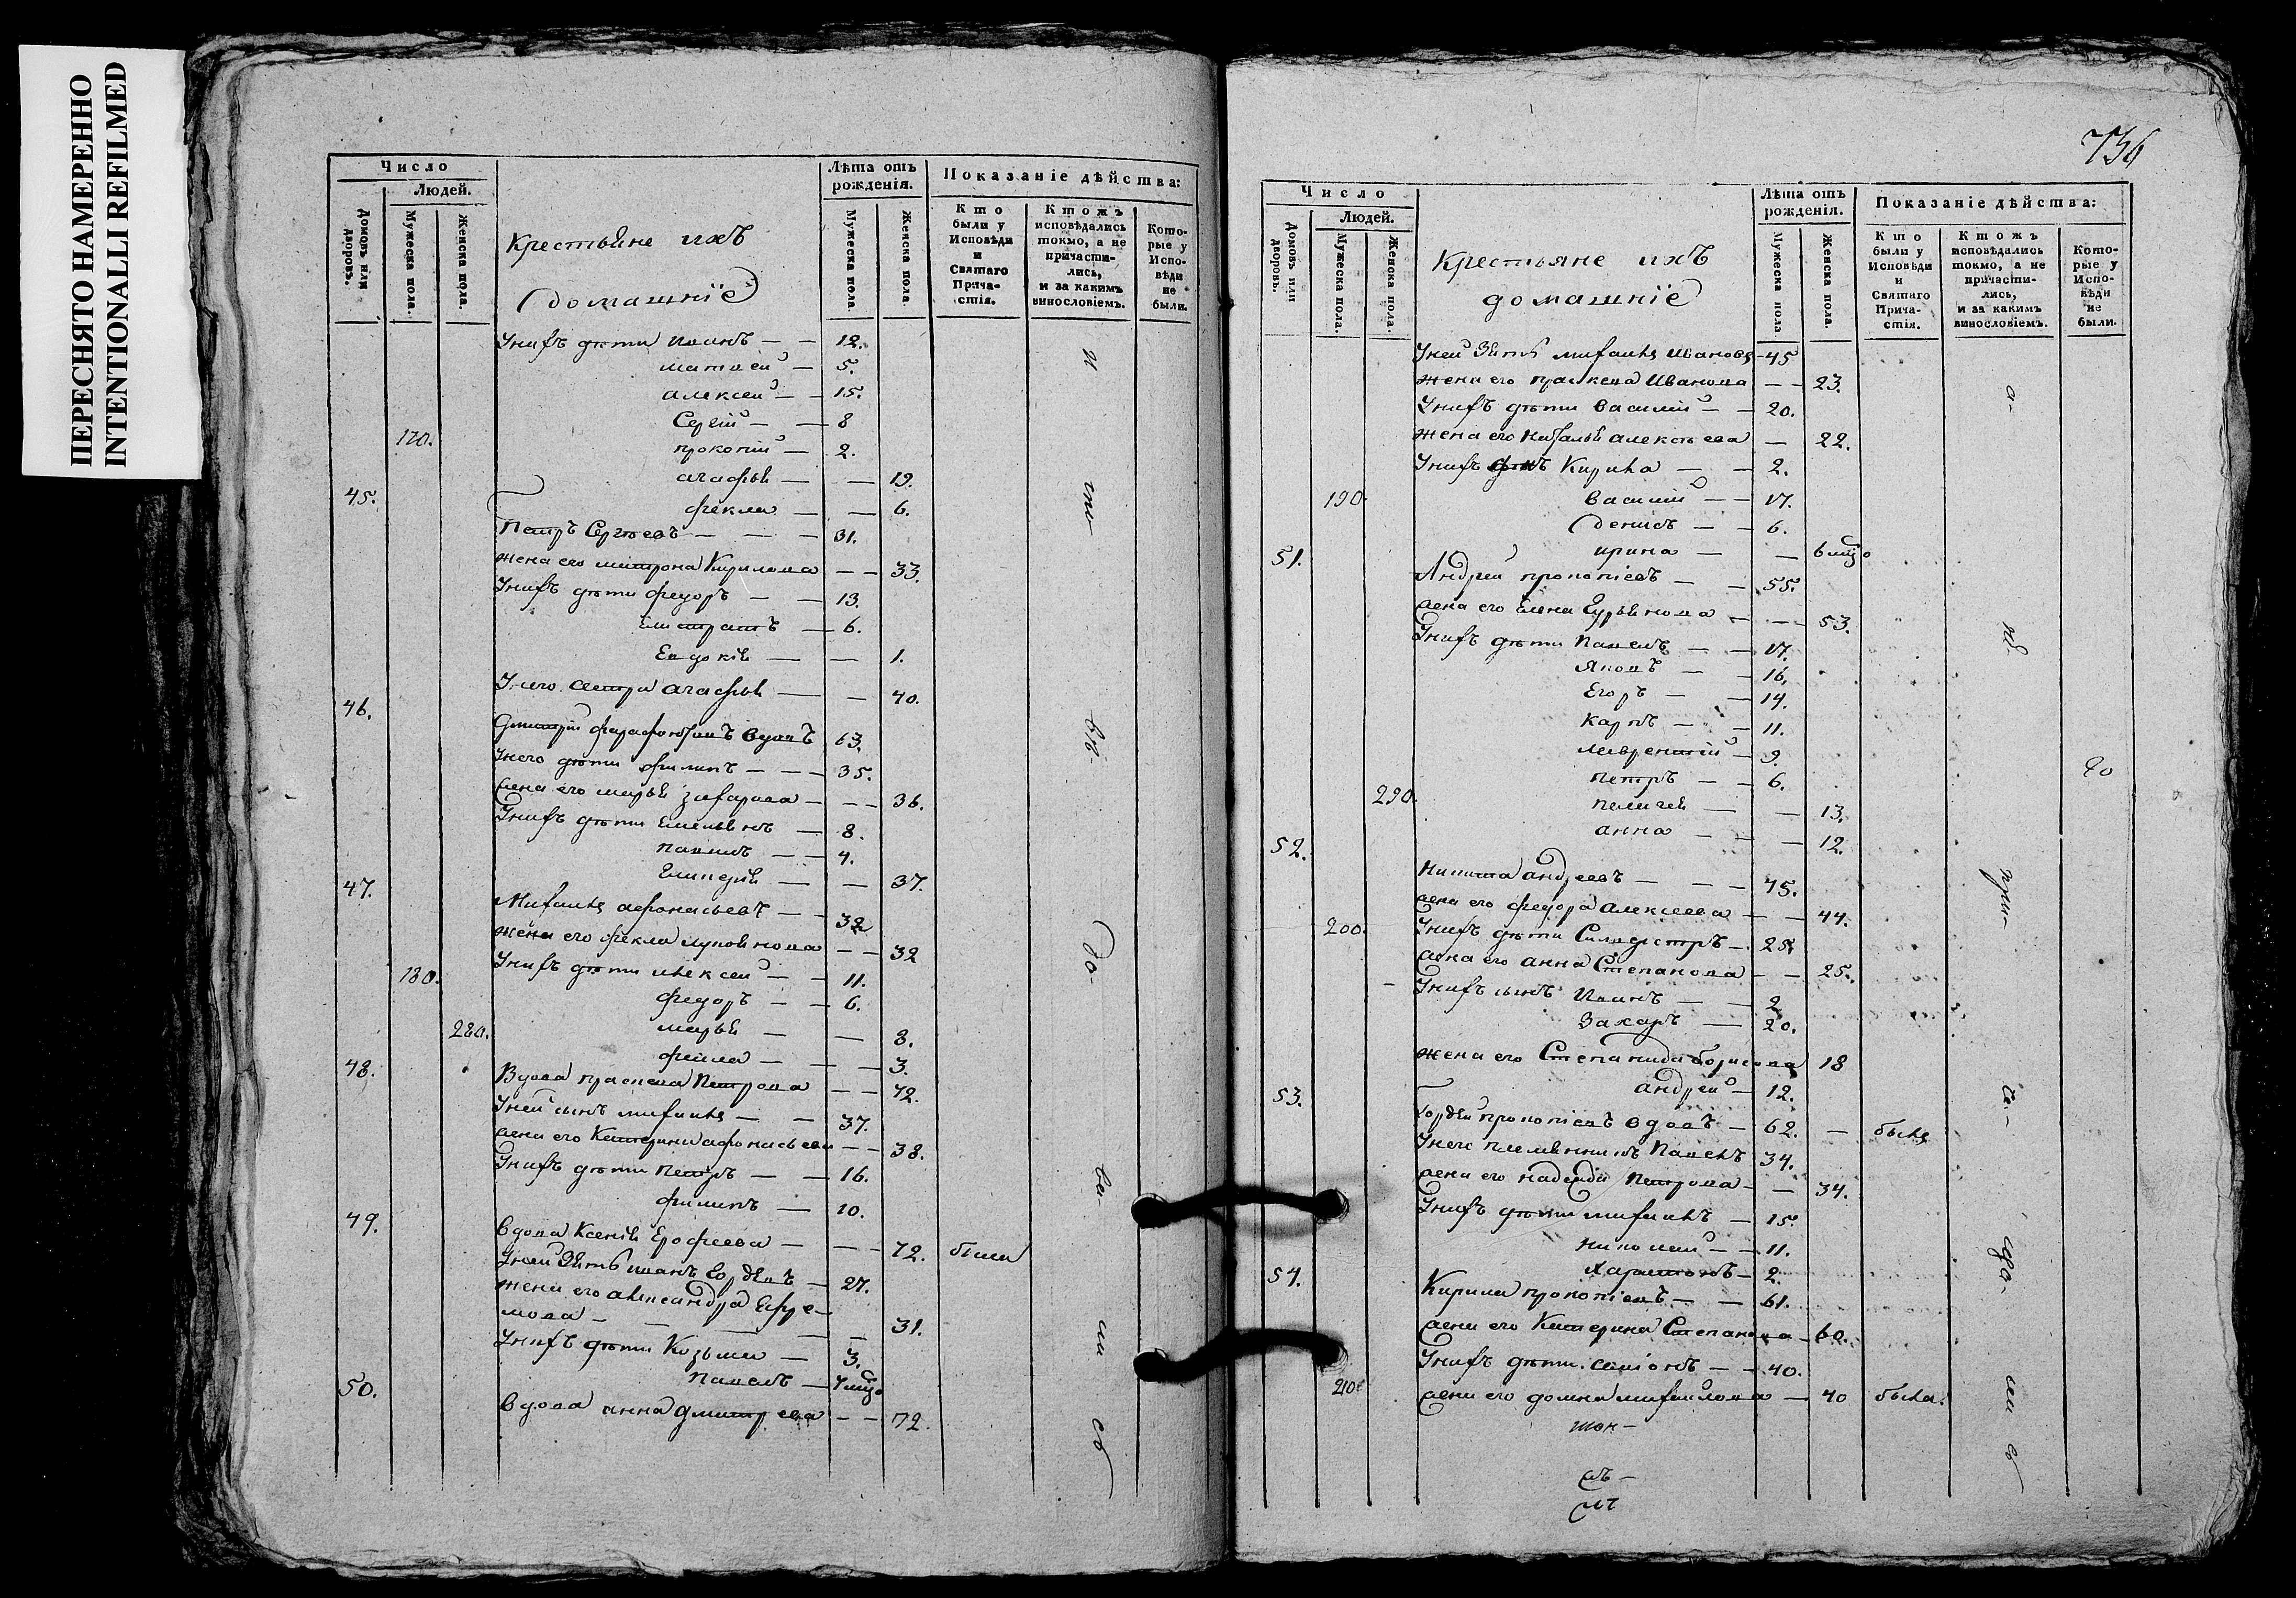 ПЕРЕСНЯТО НАМЕРЕННО
INTENTIONALLI REFILMED
Число
Людей.
Домовъ или дворовъ.
Мужеска пола.
Женска пола.
Крестьяне ихъ
домашніе
Лѣта отъ рожденія.
Мужеска пола.
Женска пола.
Показаніе дѣйства:
Кто были у Исповѣди и Святаго Причастія.
Ктожъ исповѣдались токмо, а не причастились, и за какимъ винословіемъ.
Которые у Исповѣди не были.
У нихъ дѣти Иванъ — — 12.
матвей — 5.
алексей — — 15.
Сергій — — 8
170. прокопій — 2.
агафья — — 19.
45. фекла — — 6.
Петръ Сергѣевъ — — — 31.
жена его матрона Кирилова — — 33.
У нихъ дѣти федоръ — — 13.
Елистратъ — 6.
Евдокія — — 1.
У него сестра агафья — — 40.
46.
Дмитрій вдовъ 63.
У него дѣти филипъ — — — 35.
жена его марья захарова — — — 36.
У нихъ дѣти Емельянъ — 8.
павелъ — — 4.
— — 37.
47.
Михаила афонасьевъ — — 32
жена его фекла — — 32
У нихъ дѣти алексей — — 11.
180. федоръ — — 6.
280. марья — — 8.
— — 3.
48.
Вдова Петрова — — 72.
У ней сынъ михаила — — 37.
жена его Катерина афонасьева — — 38.
У нихъ дѣти Петръ — — 16.
филипъ — 10.
49.
вдова Ксенія Ерофеева — — — 72. была
У ней Зять иванъ Гордѣевъ — 27.
жена его александра Ефре-
мова — — — — 31.
У нихъ дѣти Козьма — 3.
Павелъ — 7
50.
вдова анна дмитрева — — 72.
и
спо
вѣ-
до-
ва-
ли
сь
736
Число
Людей.
Домовъ или дворовъ.
Мужеска пола.
Женска пола.
Крестьяне ихъ
домашніе
Лѣта отъ рожденія.
Мужеска пола
Женска пола.
Показаніе дѣйства:
Кто были у Исповѣди и Святаго Причастія.
Ктожъ исповѣдались токмо, а не причастились, и за какимъ винословіемъ.
Которые у Исповѣди не были.
У ней Зять михаила Ивановъ — 45
жена его праскева Иванова — — 23.
У нихъ дѣти василій — — 20.
жена его Наталья алексѣева — 22.
У нихъ Кирила — — 2.
190. василій — — 17.
денисъ — — 6.
51. ирина — — 6
Андрей прокопіевъ — — 55.
жена его Елена — — 53.
У нихъ дѣти Павелъ — — 17.
Яковъ — — 16.
Егоръ — — 14.
карпъ — — 11.
лаврентій — 9.
петръ — — 6.
290. пелагея — — 13.
52. анна — — — 12.
Никита андреевъ — — — 45.
жена его федора алексеева — — 44.
200. У нихъ дѣти Силвестръ — 25.
жена его анна Степанова — — 25.
У нихъ сынъ Иванъ — — 2
Захаръ — 20.
жена его Степанида борисова 18
53. андрей — 12.
Гордѣй прокопіевъ вдовъ — 62. — былъ
У него племянникъ Павелъ 34.
жена его надежда Петрова — — 34.
У нихъ дѣти михаилъ — 15.
николай — — 11.
54. Харитонъ — 2.
Кирила прокопіевъ — — 61.
жена его Катерина Степанова — 60.
У нихъ дѣти симіонъ — — 40.
210. жена его домна михаилова — 40 была.